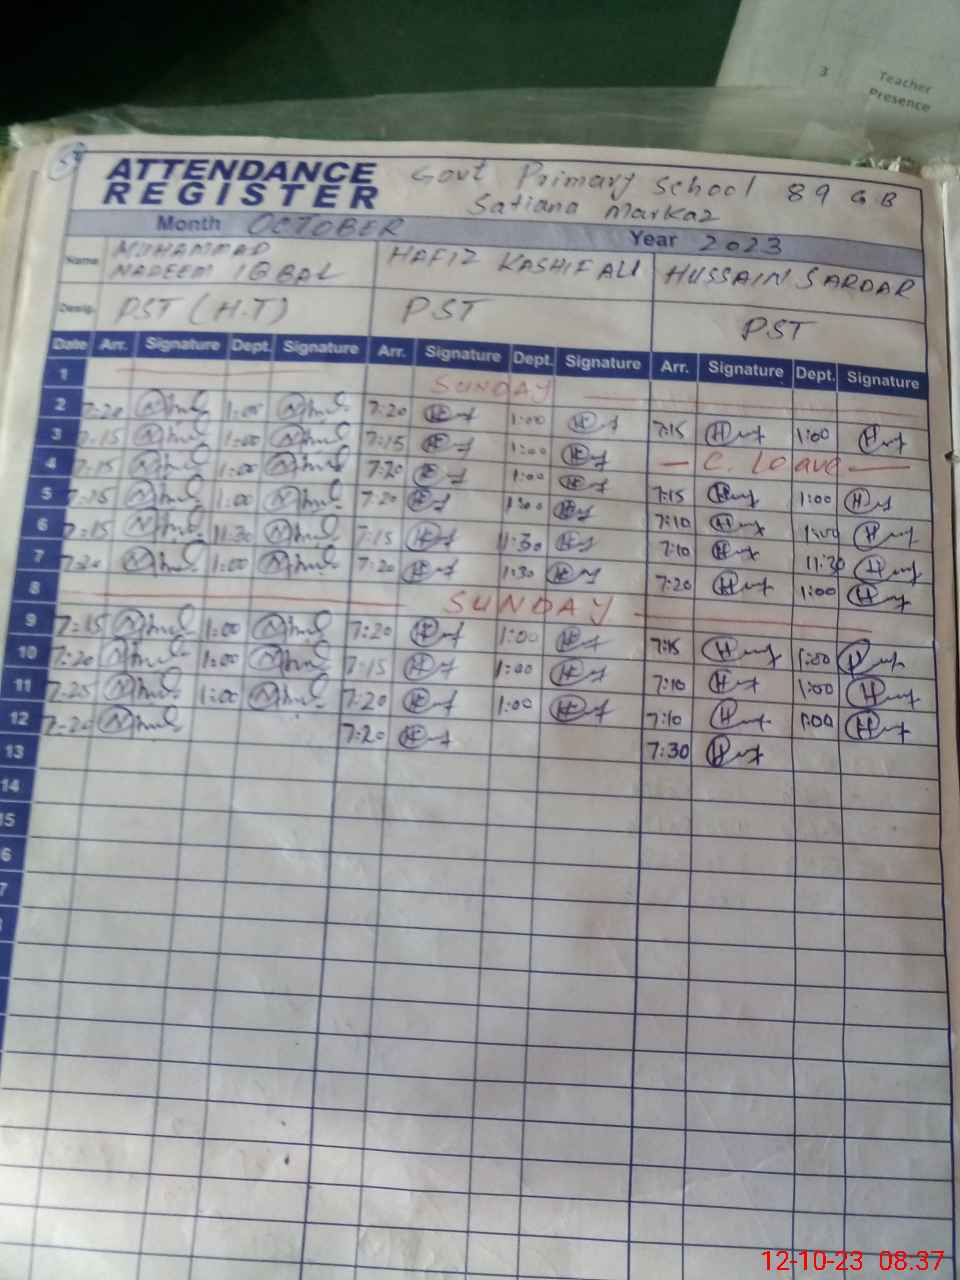 3 Teacher
Presence
54
ATTENDANCE
REGISTER
Govt Primary School 89 GB
Satiana Markaz
Month OCTOBER Year 2023
Name MUHAMMAD NADEEM IQBAL HAFIZ KASHIF ALI HUSSAIN SARDAR
Desig. PST (H.T) PST PST
Date Arr. Signature Dept. Signature Arr. Signature Dept. Signature Arr. Signature Dept. Signature
1 SUNDAY
2 7:20 1:00 7:20 1:00 7:15 1:00
3 7:15 1:00 7:15 1:00 C. Leave
4 7:15 1:00 7:20 1:00 7:15 1:00
5 7:15 1:00 7:20 1:00 7:10 1:00
6 7:15 11:30 7:15 11:30 7:10 11:30
7 7:20 1:00 7:20 1:30 7:20 1:00
8 SUNDAY
9 7:15 1:00 7:20 1:00 7:15 1:00
10 7:20 1:00 7:15 1:00 7:10 1:00
11 7:25 1:00 7:20 1:00 7:10 1:00
12 7:20 7:20 7:30
13
14
15
6
7
12-10-23 08:37